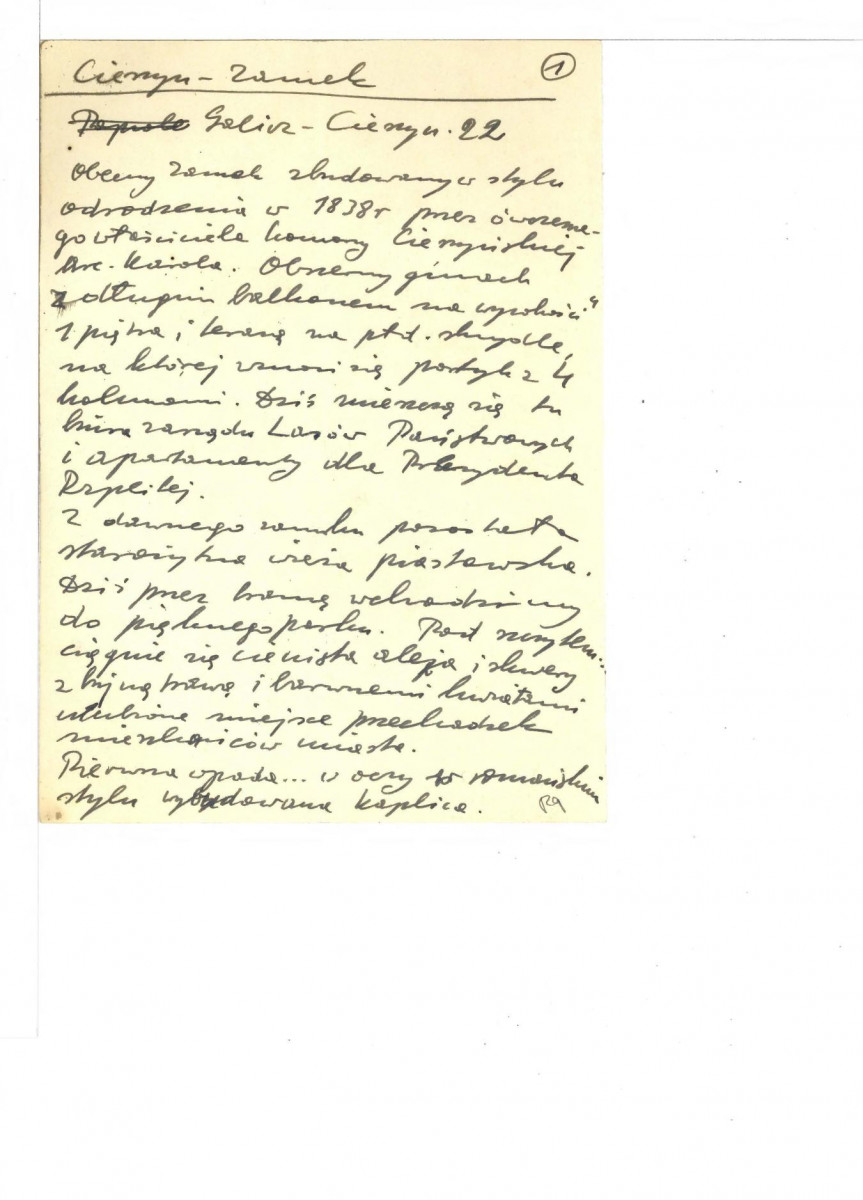 Cieszyn – Zamek 1
Galicz – Cieszyn. 22
Obecny zamek zbudowany w stylu
odrodzenia w 1838 r przez ówczesne-
go właściciela komory Cieszyńskiej
Arc. Karola. Obszerny gmach
z długim balkonem na wysokości
1 piętra i terasą na płd. skrzydle,
na której wznosi się portyk z 4
kolumnami. Dziś mieszczą się tu
biura zarządu Lasów Państwowych
i apartamenty dla Prezydenta
Rzplitej.
Z dawnego zamku pozostała
starożytna wieża piastowska.
Dziś przez bramę wchodzimy
do pięknego parku. Pod szczytem...
ciągnie się cienista aleja i skwery
z bujną trawą i barwnemi kwiatami
ulubione miejsce przechadzek
mieszkańców miasta.
Pierwsza wpada... w oczy w romańskim
stylu wybudowana kaplica.